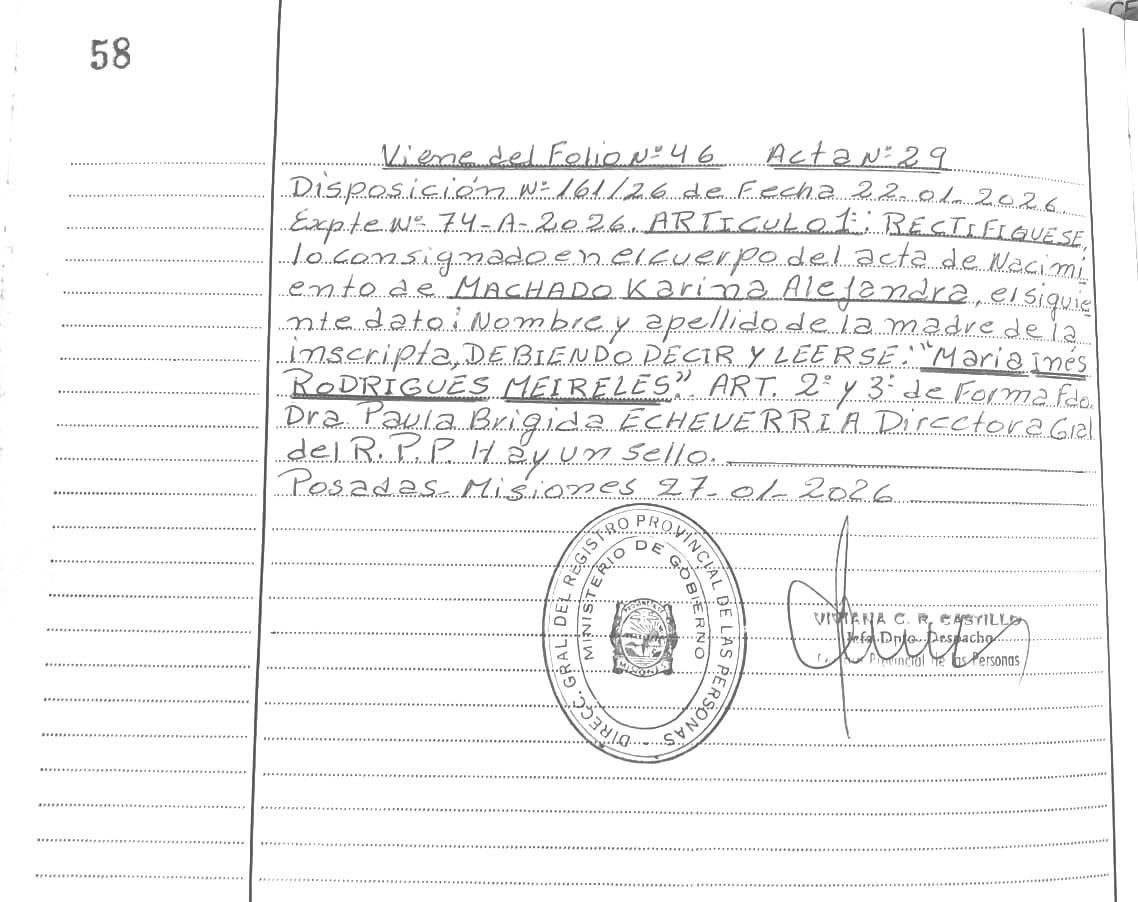 CE
58
Viene del Folio Nº 46 Acta Nº 29
Disposición Nº 161/26 de Fecha 22-01-2026
Expte Nº 74-A-2026. ARTICULO 1º: RECTIFIQUESE,
lo consignado en el cuerpo del acta de Nacimi
ento de MACHADO Karina Alejandra, el siguie
nte dato: Nombre y apellido de la madre de la
inscripta, DEBIENDO DECIR Y LEERSE: "Maria Inés
RODRIGUES MEIRELES". ART. 2º y 3º de Forma Fdo.
Dra Paula Brigida ECHEVERRIA Directora Gral
del R.P.P. Hay un Sello.
Posadas-Misiones 27-01-2026
DIRECC. GRAL. DEL REGISTRO PROVINCIAL DE LAS PERSONAS
MINISTERIO DE GOBIERNO
PROVINCIA DE
MISIONES
VIVIANA C. R. CASTILLO
Jefa Dpto Despacho
Provincial de las Personas